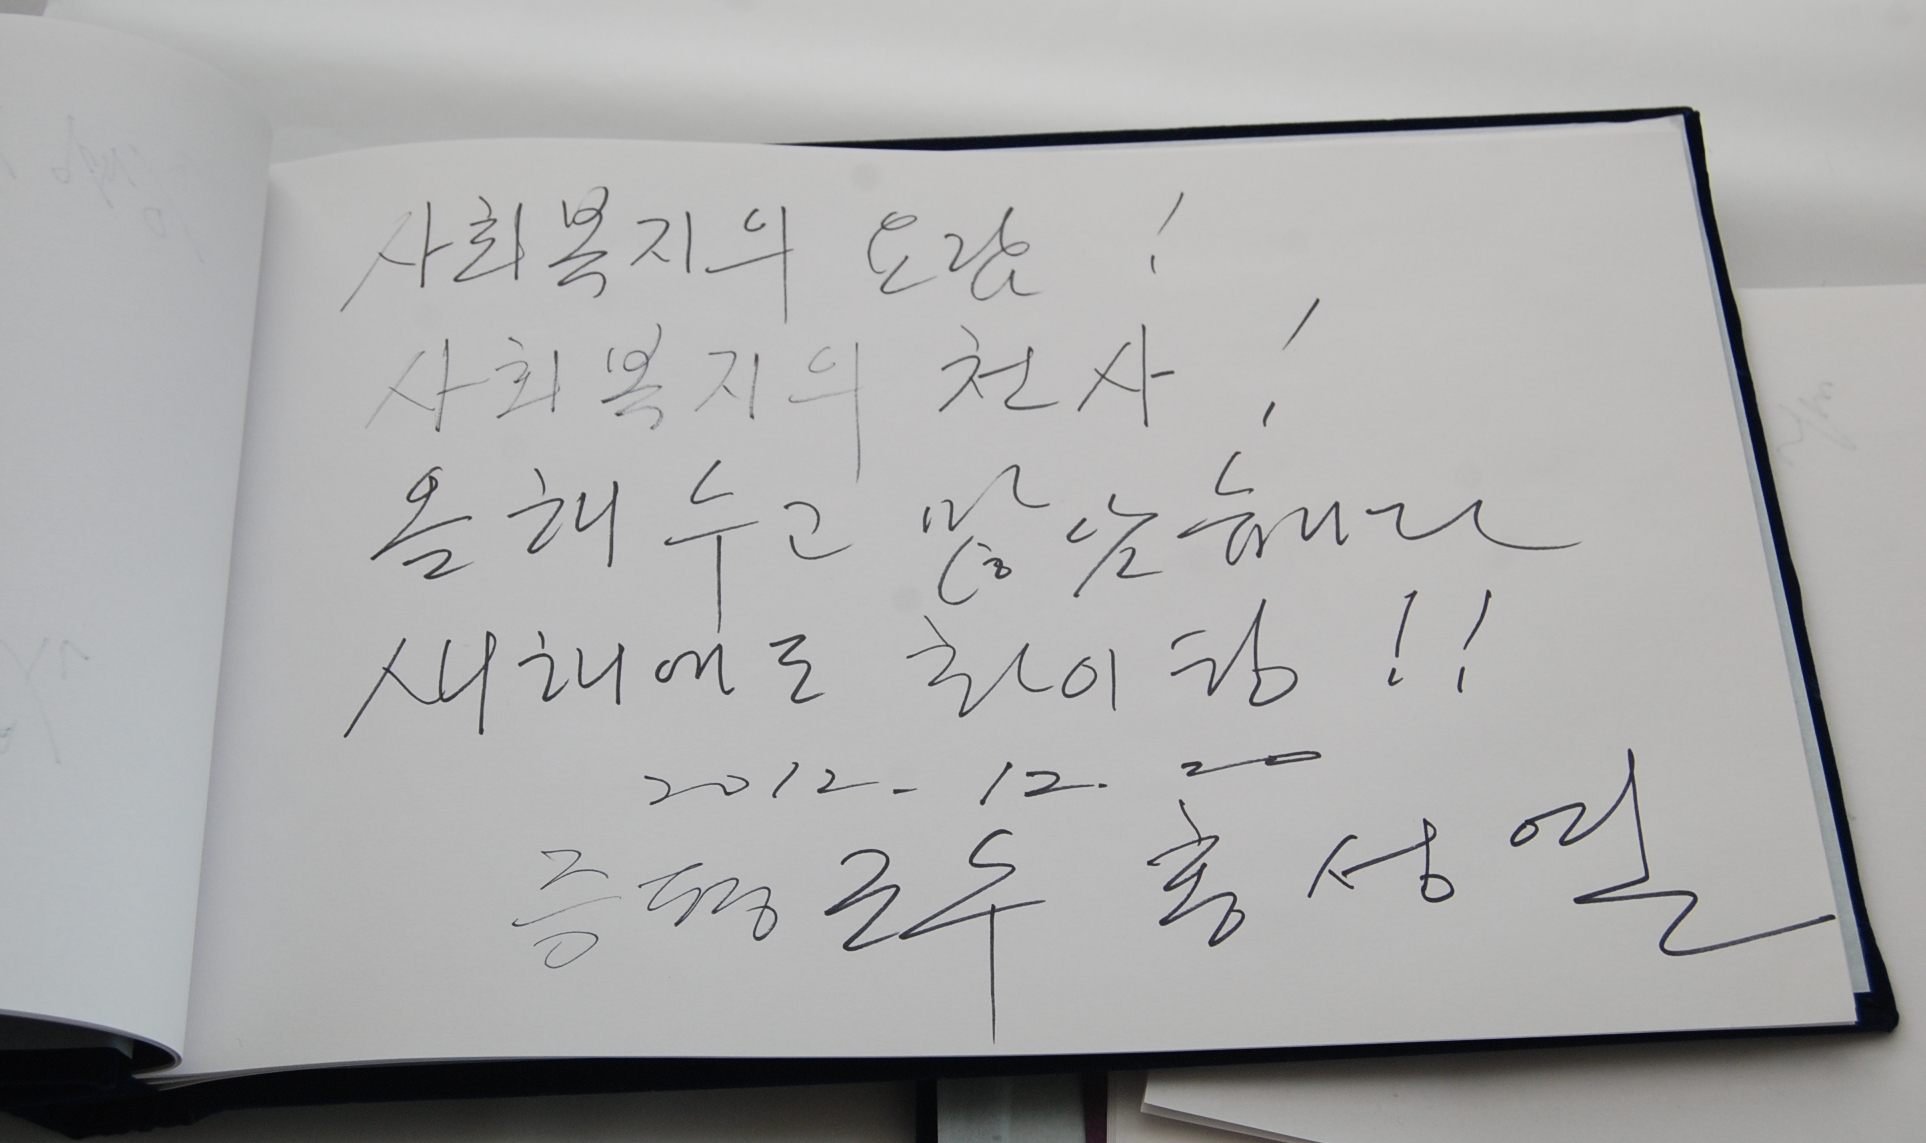 사회복지의 요람!
사회복지의 천사!
올해 수고 많았습니다
새해에도 화이팅!!
2012. 12. 20
증평군수 홍성열